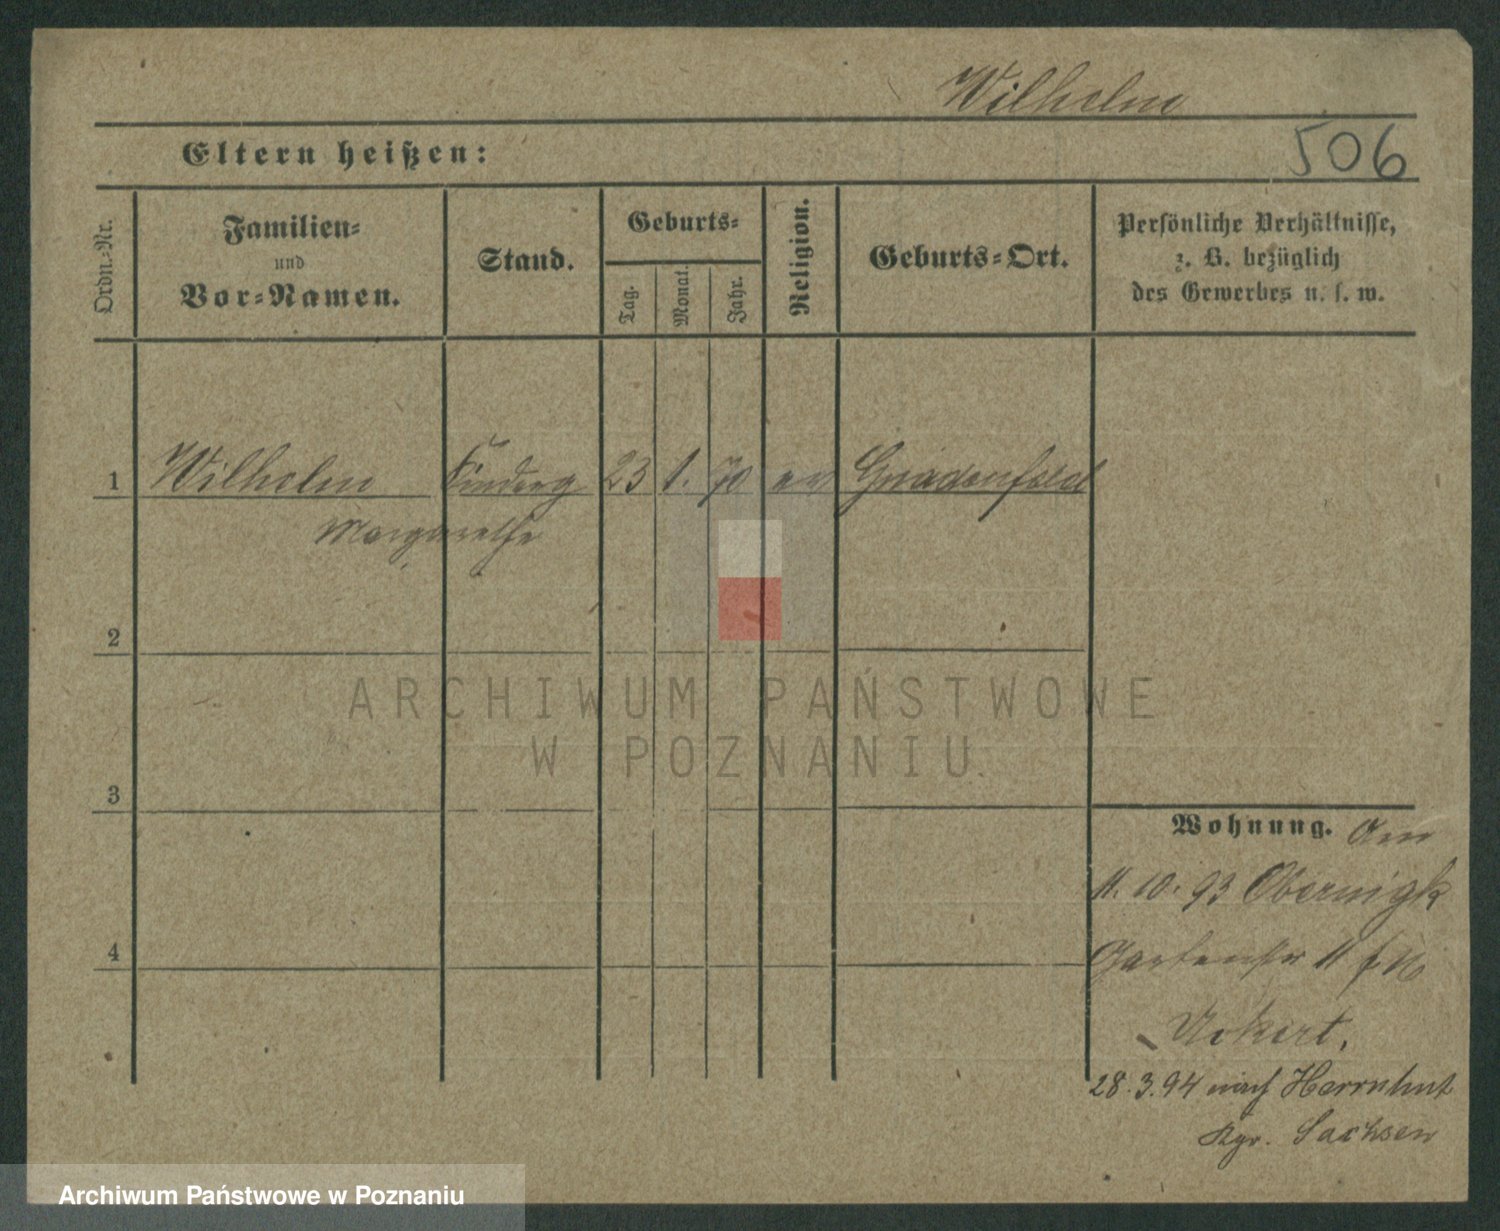 Wilhelm
506
Eltern heißen:
Ordn.-Nr.
Familien-
und
Vor-Namen.
Stand.
Geburts-
Tag.
Monat.
Jahr.
Religion.
Geburts-Ort.
Persönliche Verhältnisse,
z. B. bezüglich
des Gewerbes u. s. w.
1 Wilhelm Kinderg 23 1. 70 ev Gnadenfeld
Margarethe
2
3
4
Wohnung. Am
11. 10. 93 Obernigk
Gartenstr 11
28.3.94 nach Herrnhut
Kgr. Sachsen
ARCHIWUM PAŃSTWOWE
W POZNANIU
Archiwum Państwowe w Poznaniu